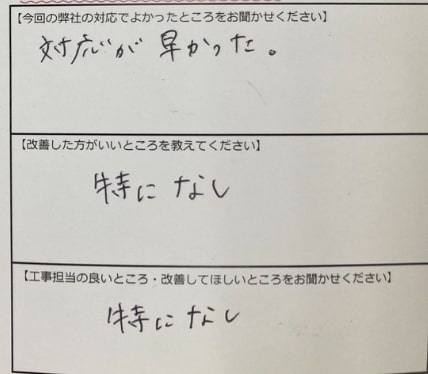 【今回の弊社の対応でよかったところをお聞かせください】
対応が早かった。
【改善した方がいいところを教えてください】
特になし
【工事担当の良いところ・改善してほしいところをお聞かせください】
特になし